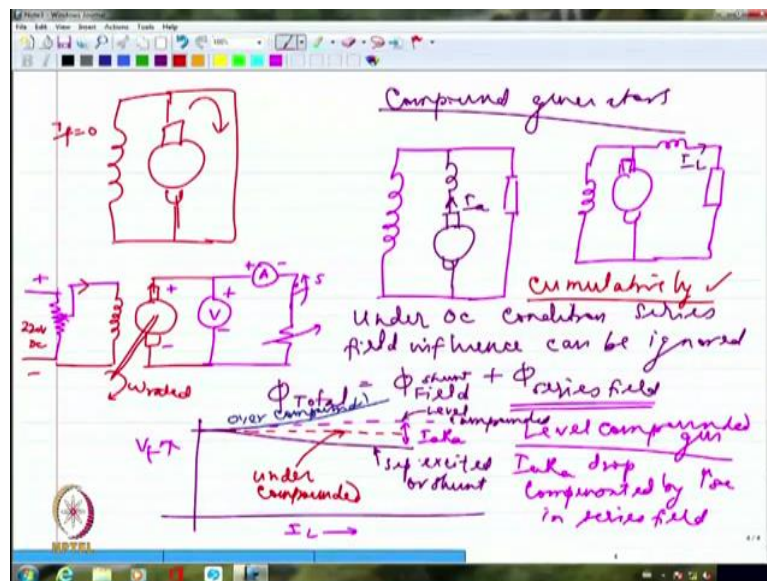 Note1 - Windows Journal
File Edit View Insert Actions Tools Help
100%
B I
Compound generators
If=0
Ia
IL
+
220V
DC
-
ωrated
+
-
V
+
-
+ A -
S
cumulatively ✓
Under OC condition series
field influence can be ignored
Φ Total = Φ shunt Field + Φ series field
over compounded
Level compounded
IaRa
Vt↑
under
compounded
sep excited
or shunt
IL →
Level compounded
gen
IaRa drop
compensated by
in series field
NPTEL
4/4